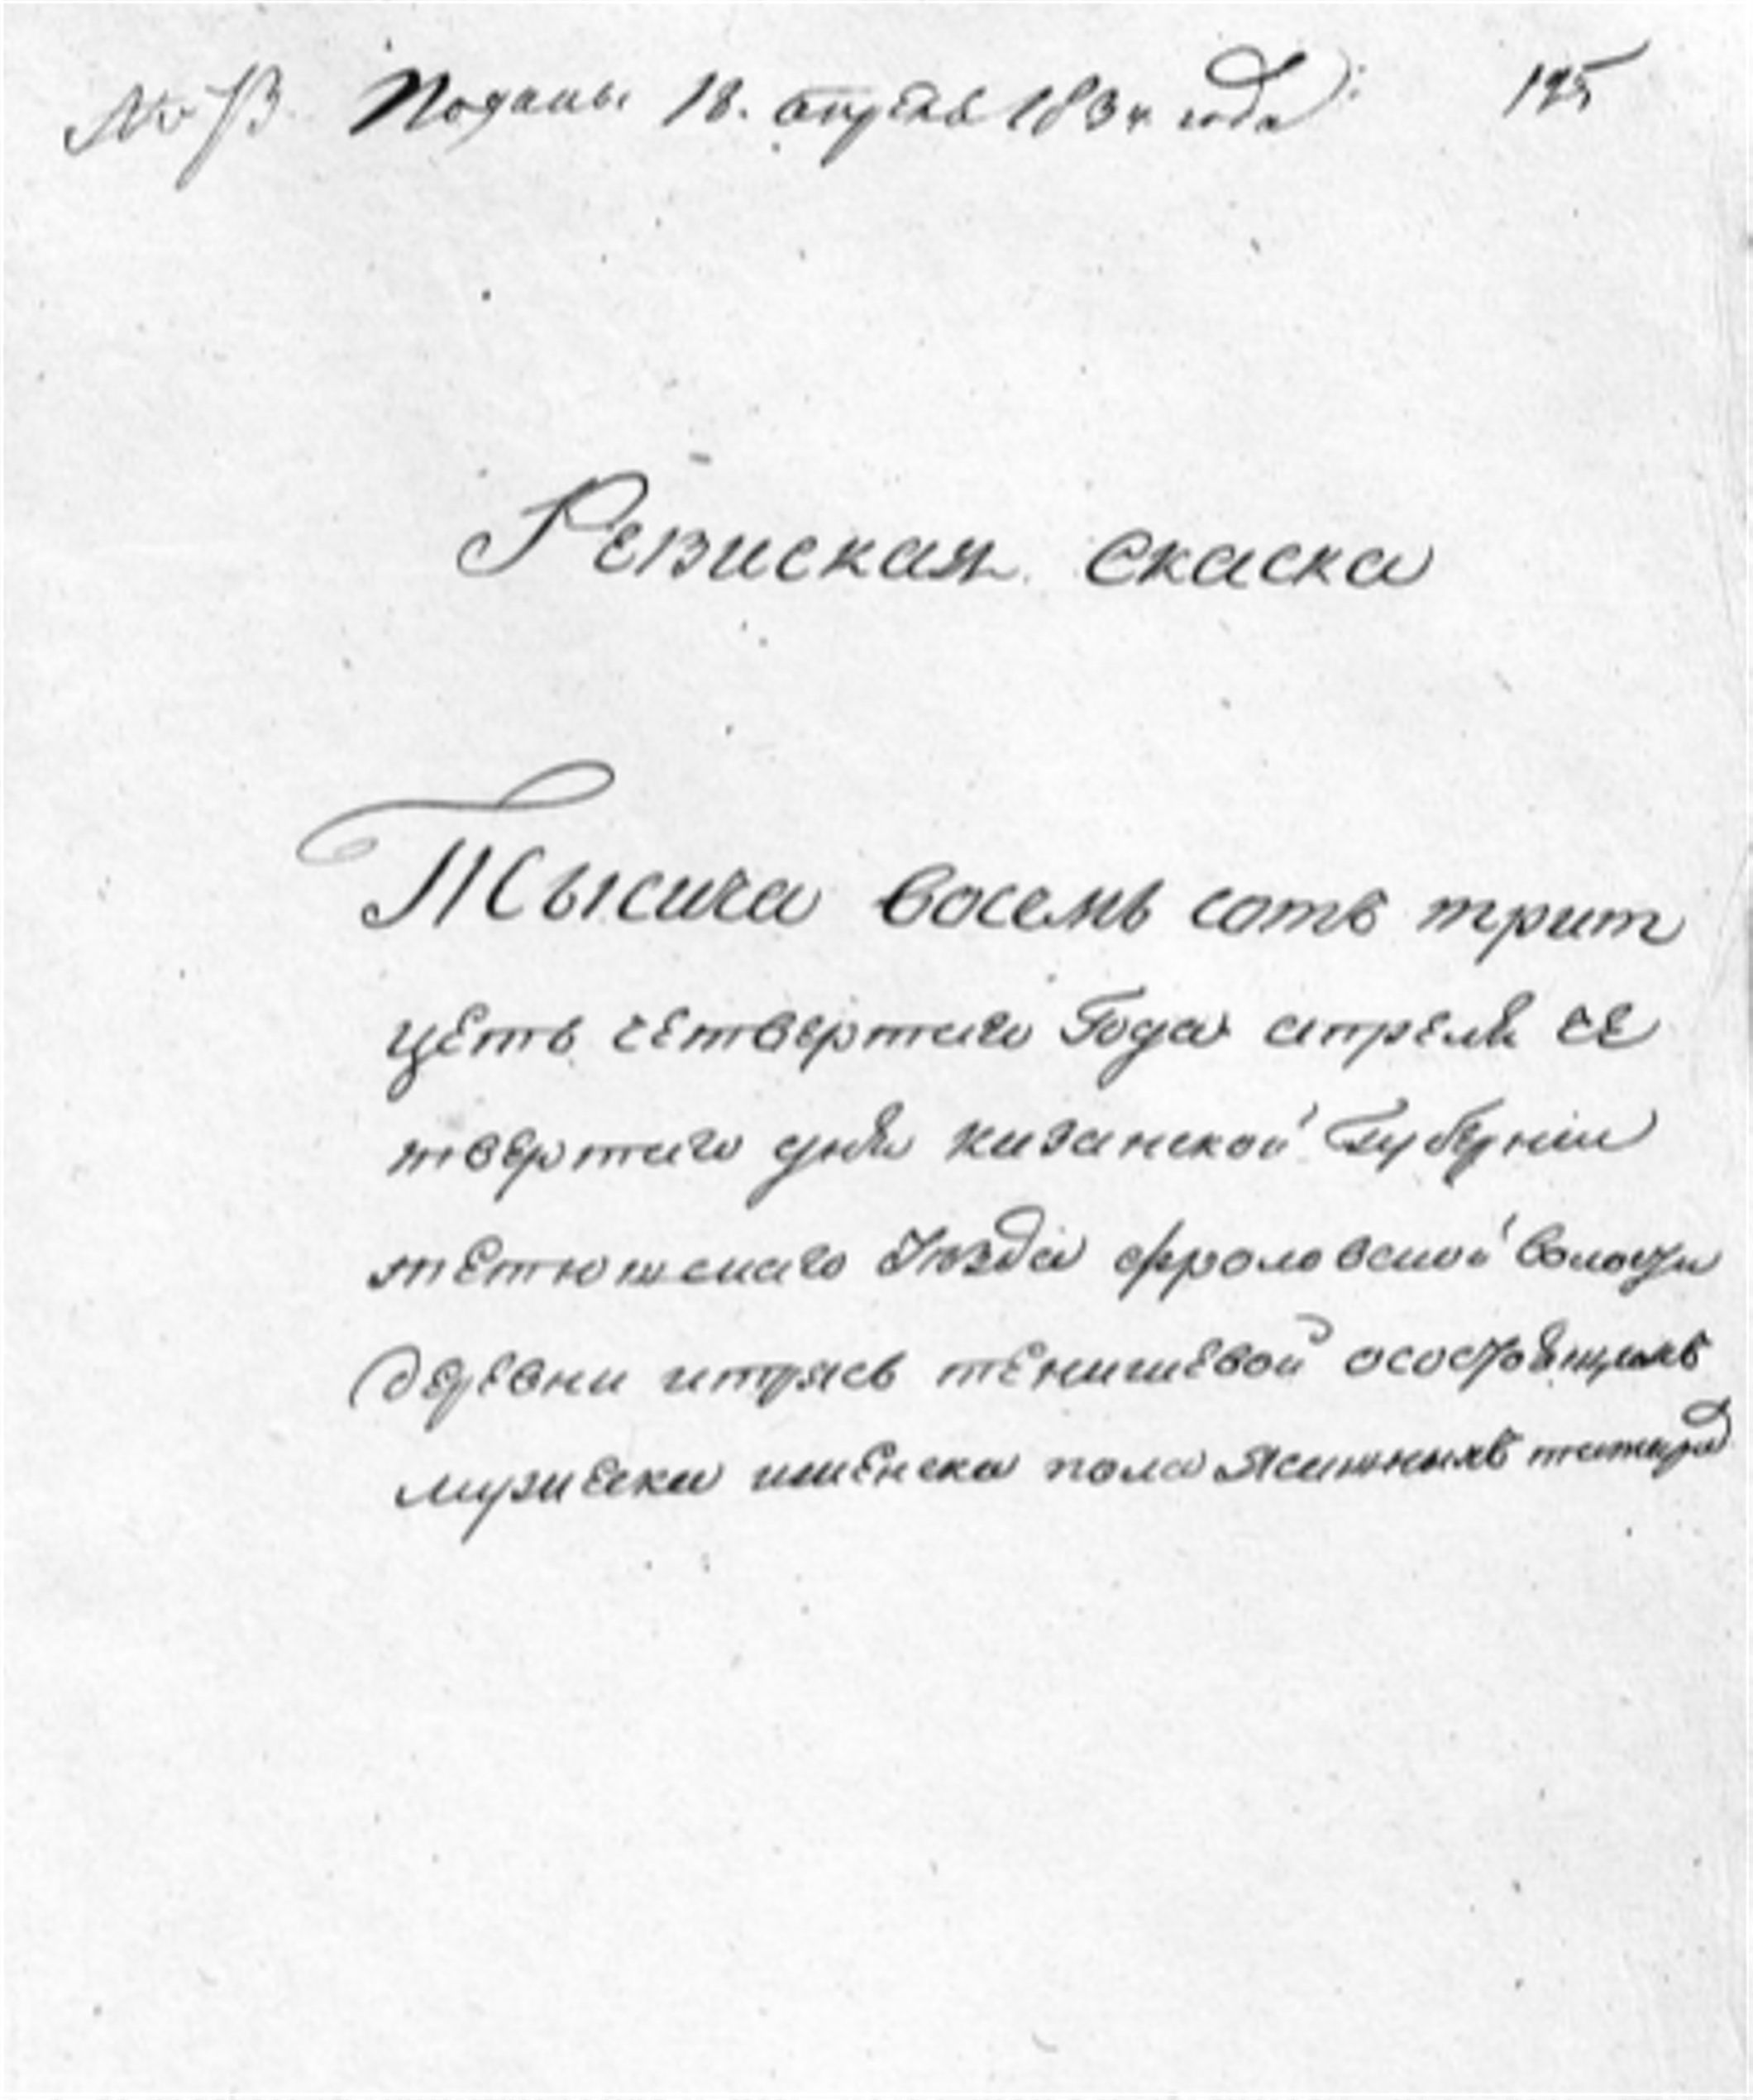 Поданы 18. апреля 1834 года: 195
Ревиская скаска
Тысича восемь сотъ трит
цеть четвертаго Года апреля че
твертаго дня казанской Губерніи
тетюшскаго Уезда фроловской волости
деревни тенишевой осостоящихъ
мужеска иженска пола Ясашныхъ татаръ